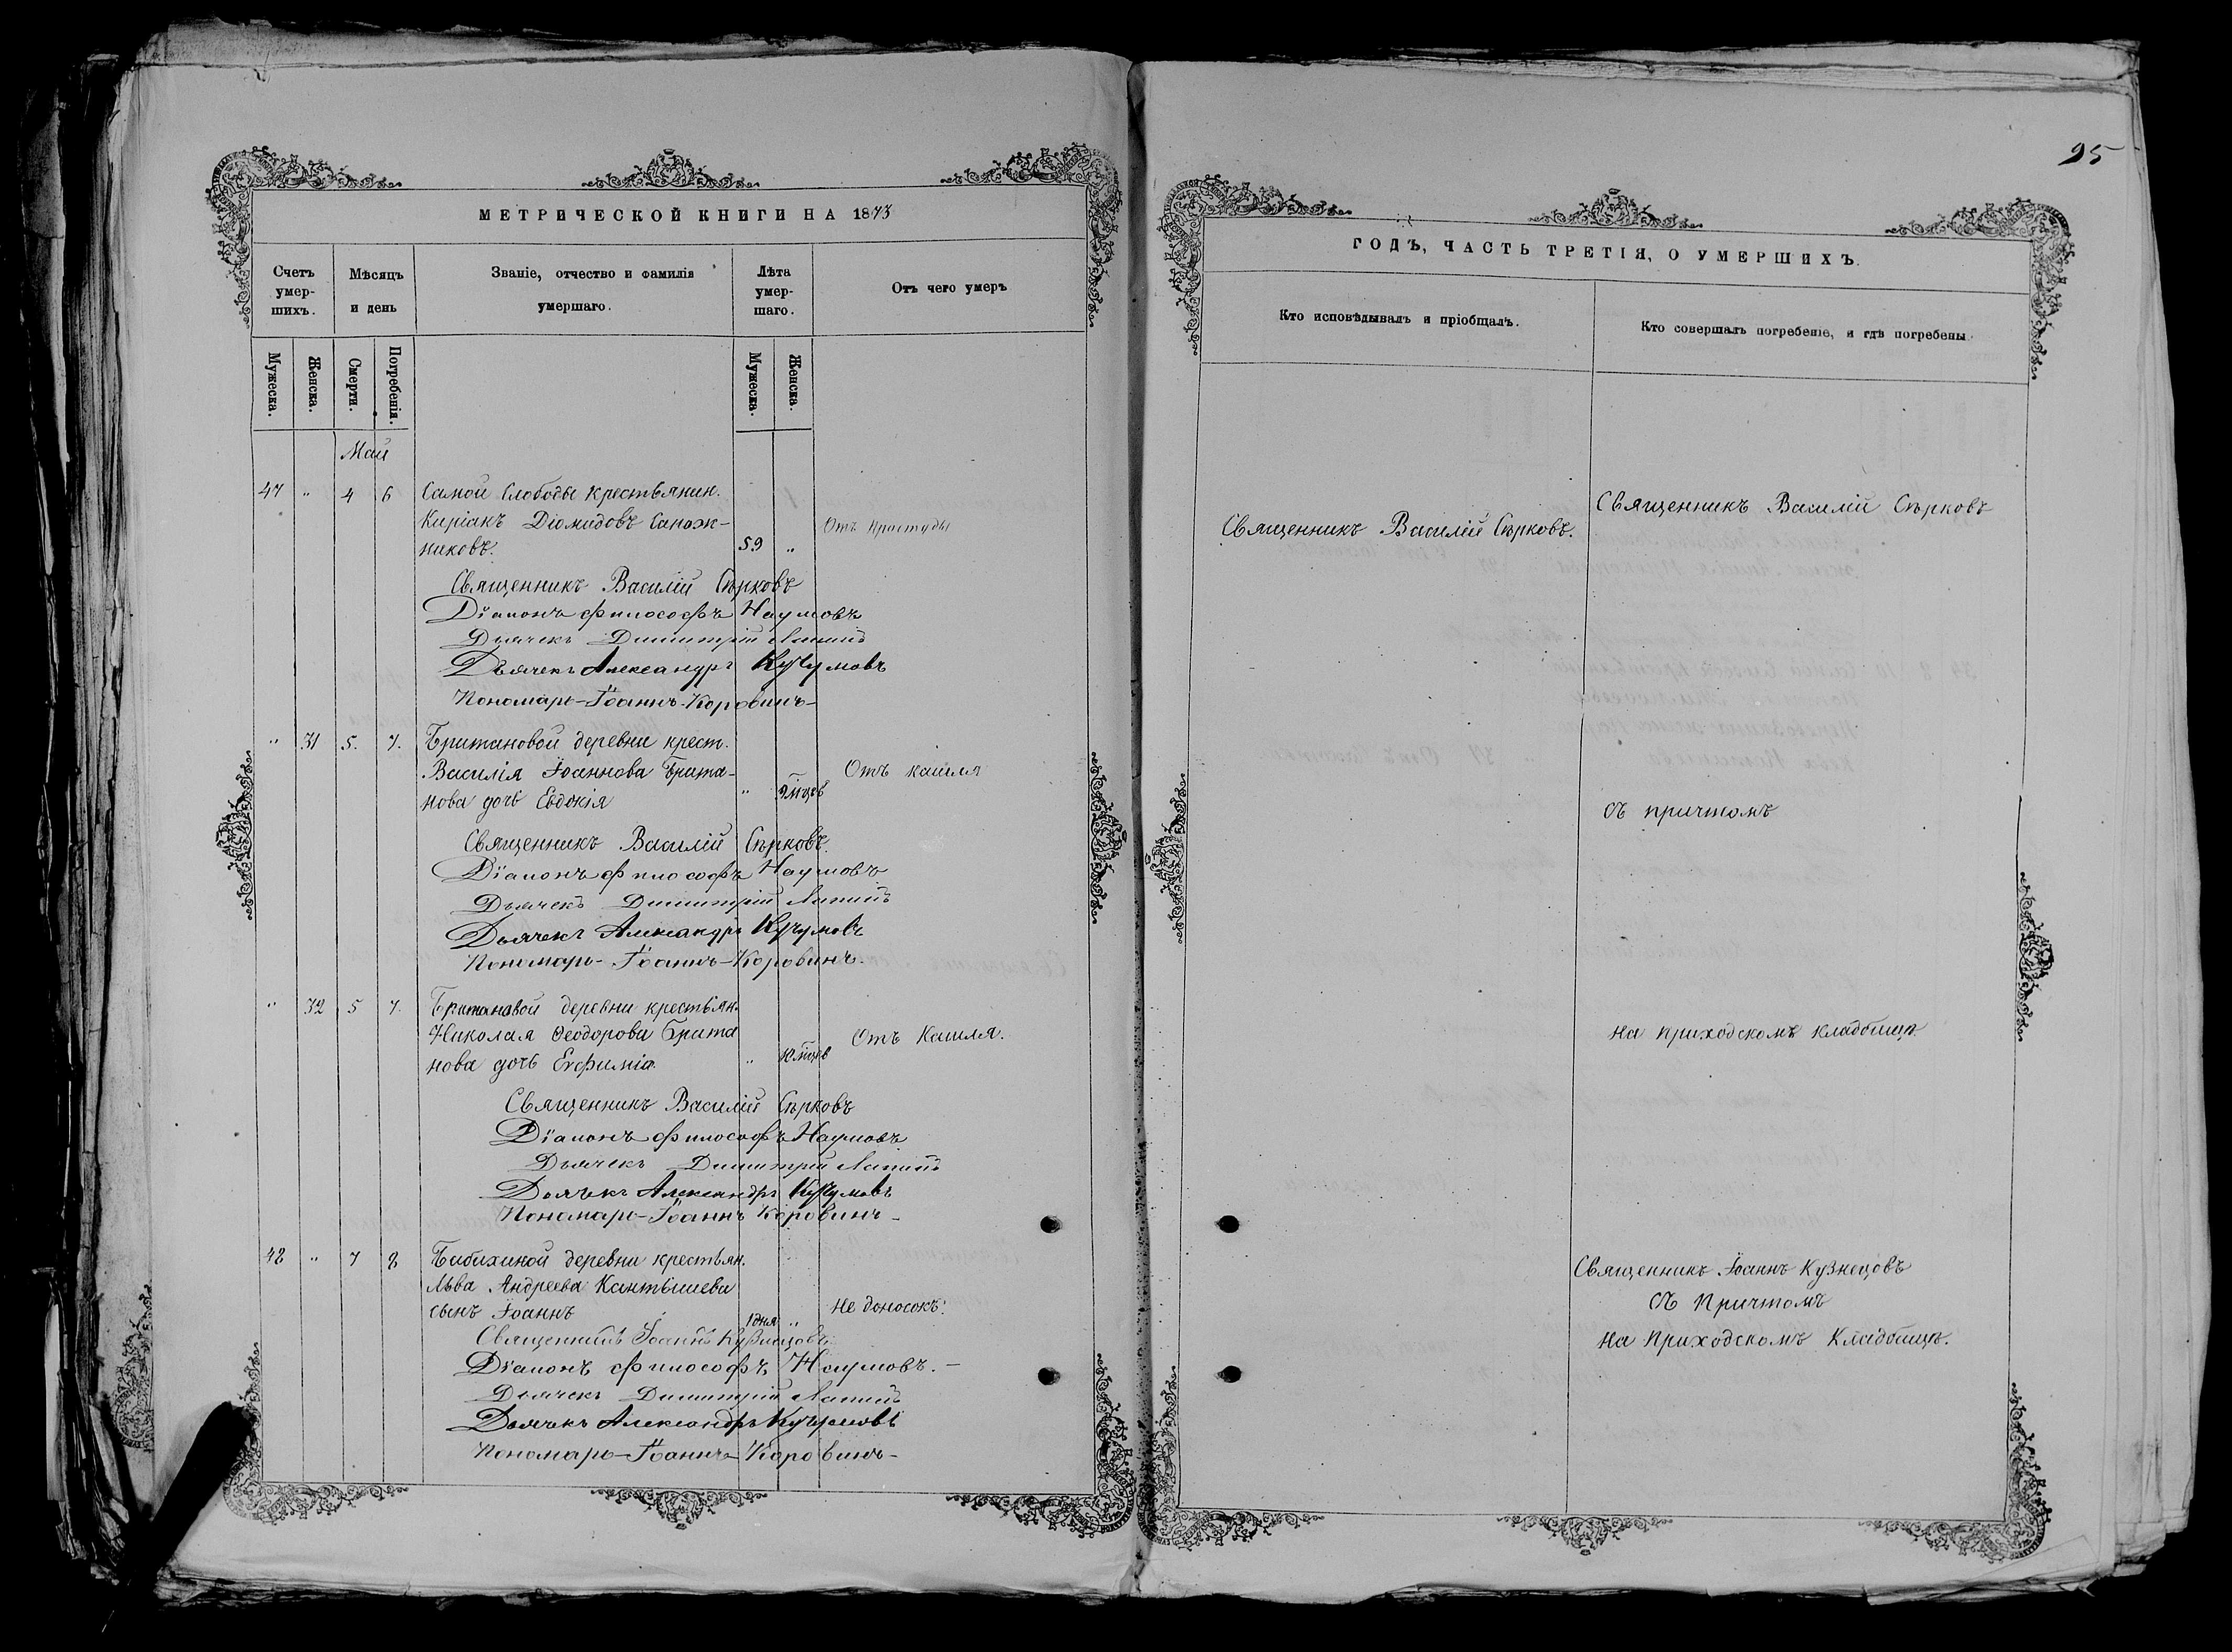 МЕТРИЧЕСКОЙ КНИГИ НА 1873
Счетъ умер-шихъ.
Мѣсяцъ и день
Званіе, отчество и фамилія умершаго.
Лѣта умер-шаго.
Отъ чего умеръ
Мужеска.
Женска.
Смерти.
Погребенія.
Мужеска.
Женска.
Май
47 " 4 6 Самой Слободы крестьянин.
Киріакъ Діомидовъ Сапож-
никовъ. 59 " Отъ простуды
Священникъ Василій Сѣрковъ
Діаконъ Философъ Наумовъ
Дьячекъ Димитрій Лапинъ
Дьячекъ Александръ Кучумовъ
Пономарь Іоаннъ Коровинъ
" 31 5. 7. Британовой деревни крест.
Василія Іоаннова Брита-
нова дочь Евдокія " мѣсцев Отъ кашля
Священникъ Василій Сѣрковъ
Діаконъ Философъ Наумовъ
Дьячекъ Димитрій Лапинъ
Дьячекъ Александръ Кучумовъ
Пономарь Іоаннъ Коровинъ.
" 32 5 7. Британовой деревни крестьян.
Николая Ѳеодорова Брита
нова дочь Евфимія " Отъ Кашля.
Священникъ Василій Сѣрковъ
Діаконъ Философъ Наумовъ
Дьячекъ Димитрій Лапинъ
Дьячекъ Александръ Кучумовъ
Пономарь Іоаннъ Коровинъ
48 " 7 8 Бабихиной деревни крестьян.
Льва Андреева
сынъ Іоаннъ 1 дня " Не доносокъ.
Священникъ Іоаннъ Кузнецовъ
Діаконъ Философъ Наумовъ.
Дьячекъ Димитрій Лапинъ
Дьячекъ Александръ Кучумовъ
Пономарь Іоаннъ Коровинъ
95
ГОДЪ, ЧАСТЬ ТРЕТІЯ, О УМЕРШИХЪ.
Кто исповѣдывалъ и пріобщалъ.
Кто совершалъ погребеніе, и гдѣ погребены
Священникъ Василій Сѣрковъ.
Священникъ Василій Сѣрковъ
съ причтомъ
на приходскомъ кладбищѣ
Священникъ Іоаннъ Кузнецовъ
Съ Причтомъ
на Приходскомъ Кладбищѣ.